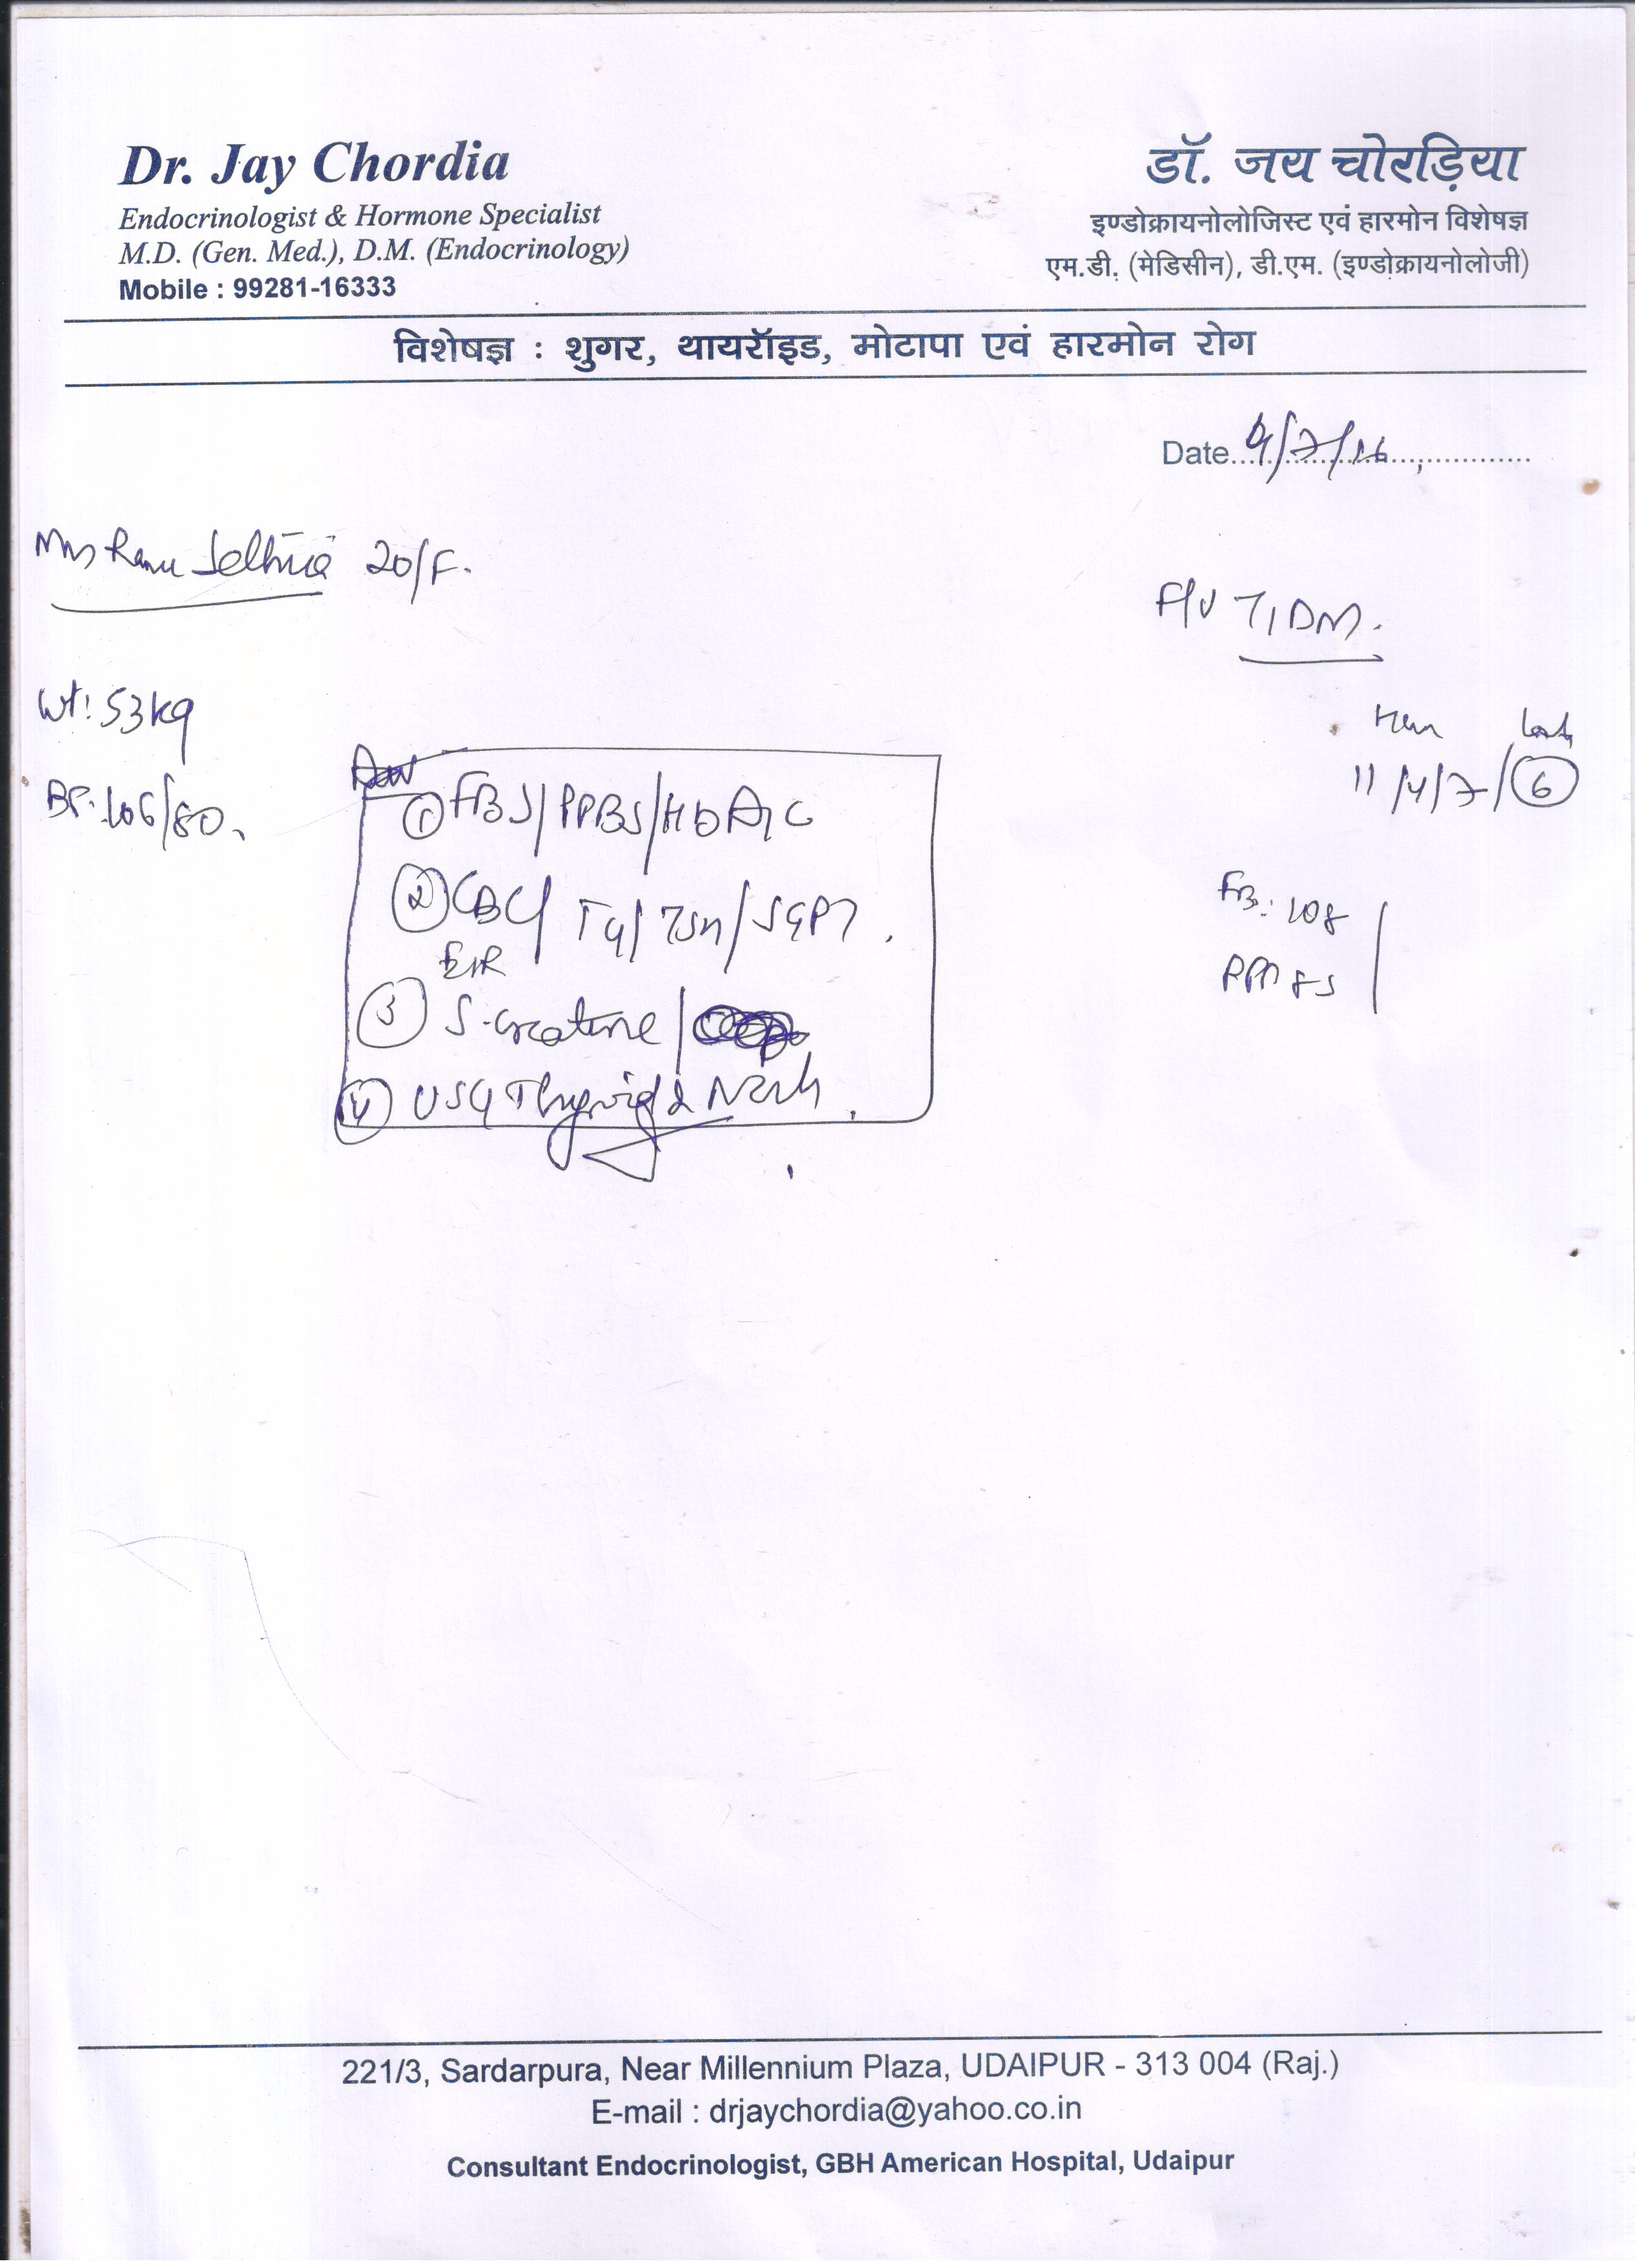 Dr. Jay Chordia
Endocrinologist & Hormone Specialist
M.D. (Gen. Med.), D.M. (Endocrinology)
Mobile : 99281-16333
डॉ. जय चोरड़िया
इण्डोक्रायनोलोजिस्ट एवं हारमोन विशेषज्ञ
एम.डी. (मेडिसीन), डी.एम. (इण्डोक्रायनोलोजी)
विशेषज्ञ : शुगर, थायरॉइड, मोटापा एवं हारमोन रोग
Date 4/7/16
Renu 20/F.
F/U T1DM.
Wt: 53kg
BP. 106/80.
11/4/7/6
① FBS/PPBS/HbA1C
② CBC/ T4/TSH/SGPT.
ESR
③ S. creatine/
④ USG Thyroid & Neck.
108
85
221/3, Sardarpura, Near Millennium Plaza, UDAIPUR - 313 004 (Raj.)
E-mail : drjaychordia@yahoo.co.in
Consultant Endocrinologist, GBH American Hospital, Udaipur